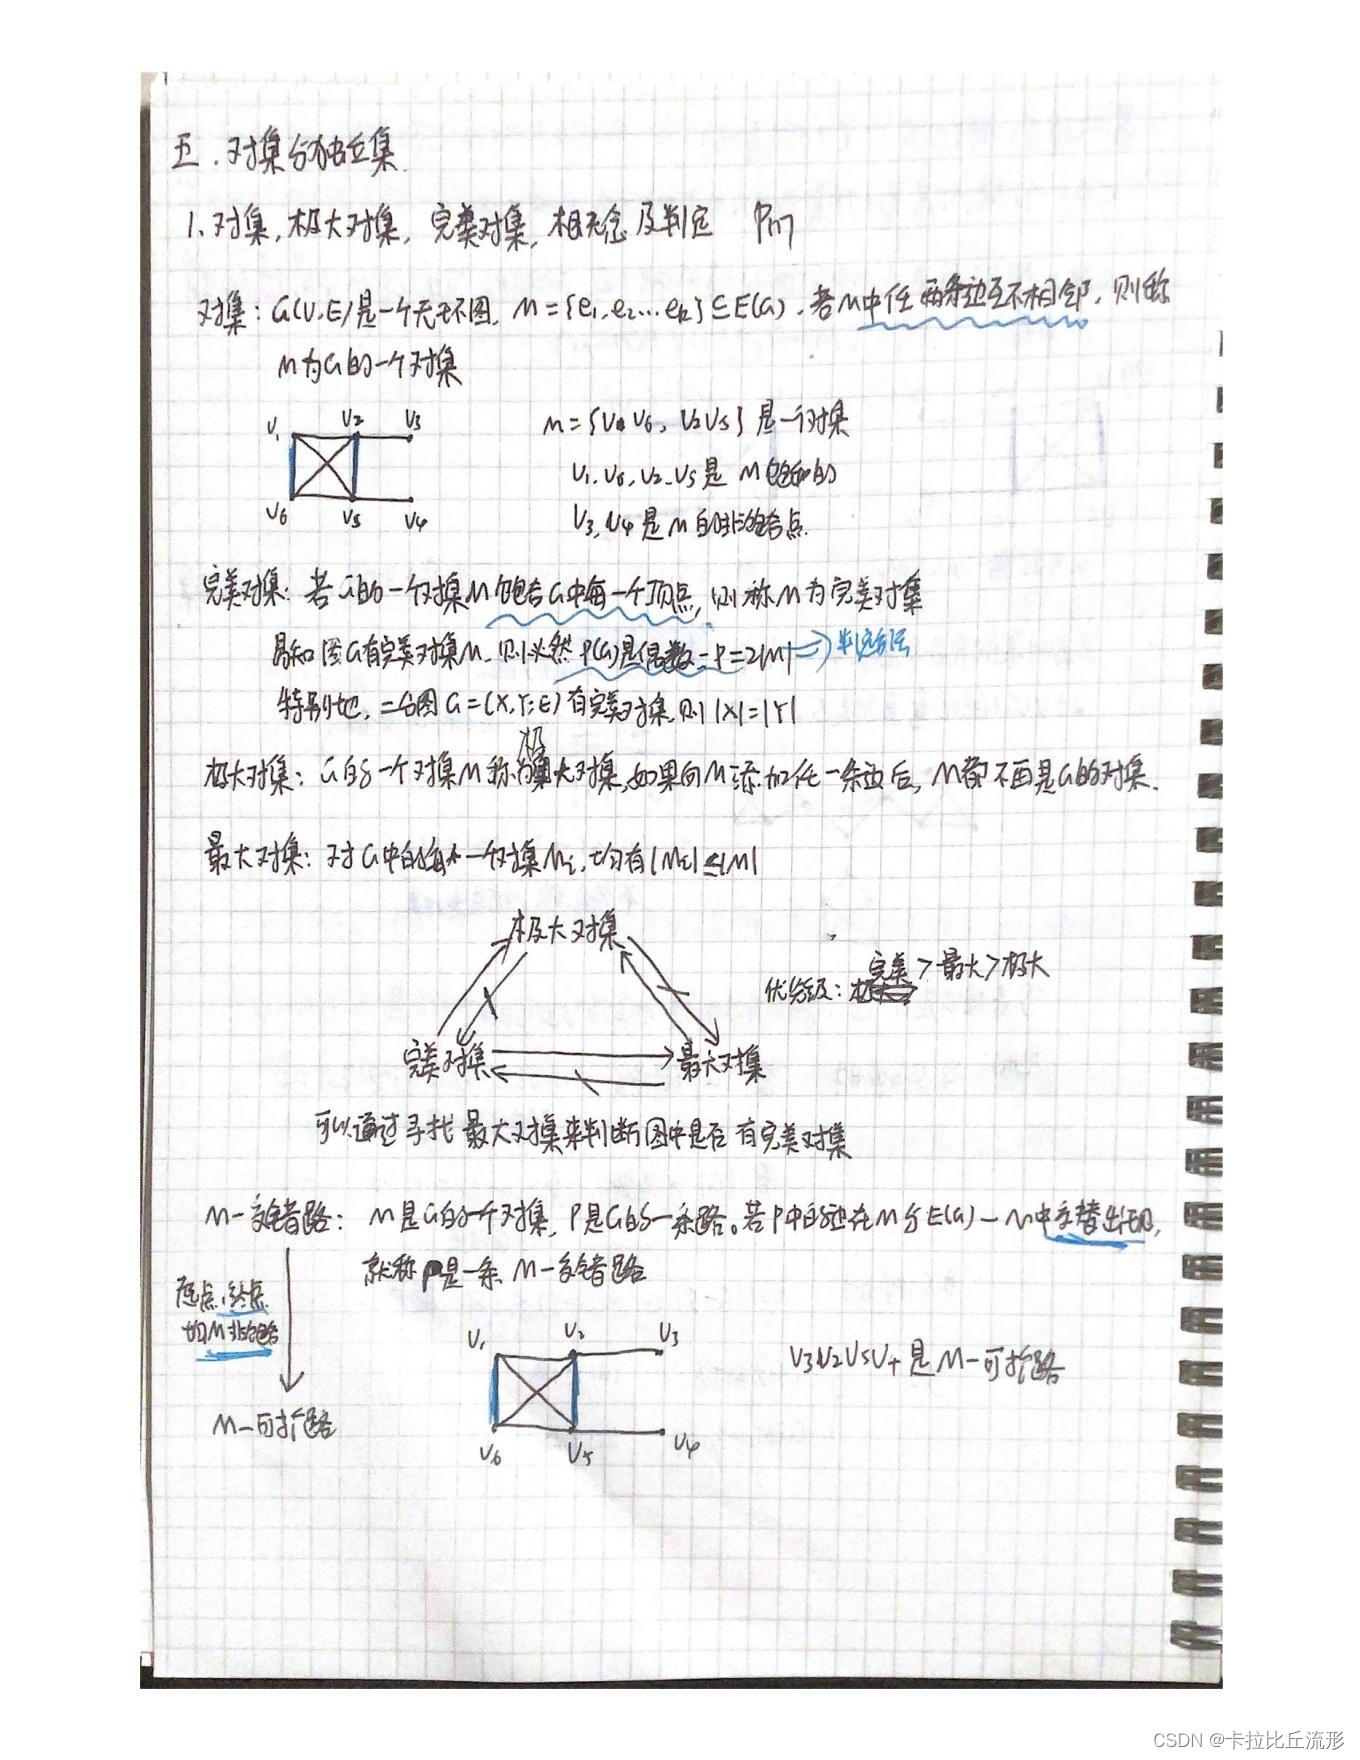 五.对集与独立集.
1.对集,极大对集,完美对集,相关概念及判定 P117
对集:G(V,E)是一个无环图,M={e1,e2…ek}⊆E(G),若M中任两条边互不相邻,则称
M为G的一个对集
V1 V2 V3
V6 V5 V4
M={V1V6, V2V5}是一个对集
V1,V6,V2,V5是M饱和的
V3,V4是M的非饱和点.
完美对集:若G的一个对集M饱和G中每一个顶点,则称M为完美对集
易知图G有完美对集M,则必然P(G)是偶数=P=2|M| ⇒判定方法
特别地,二分图G=(X,Y;E)有完美对集,则|X|=|Y|
极大对集:G的一个对集M称为极大对集,如果向M添加任一条边后,M都不再是G的对集.
最大对集:对G中的每个一个对集Mi,均有|Mi|≤|M|
极大对集
优先级:完美>最大>极大
完美对集 最大对集
可以通过寻找最大对集来判断图中是否有完美对集
M-交错路:M是G的一个对集,P是G的一条路。若P中的边在M与E(G)-M中交替出现,
就称P是一条M-交错路
起点,终点
均M非饱和
M-可扩路
V1 V2 V3
V6 V5 V4
V3V2V5V4是M-可扩路
CSDN @卡拉比丘流形